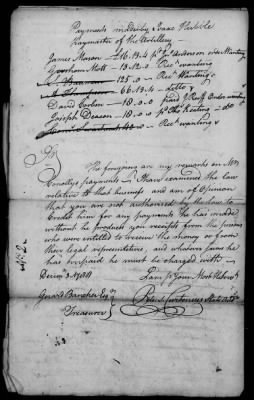 Payments made by Isaac
paymaster of the Artillery
James Mason £16.13.4
Gershom Mott 13.12.0 Rect wanting
125.0 Rect Wanting
66.13.4 ditto
David Corbin 18.0.0 paid
Joseph Deason 18.0.0
Rect wanting
Sir
The foregoing are my remarks on Mr
Connollys payments. I have examined the Law
relative to that business and am of Opinion
that you are not authorised by the law to
Credit him for any payments he has made
without he produces you receipts from the persons
who were entitled to receive the money or from
their legal representatives, and whatever sums he
has overpaid he must be charged with
I am Sir Your Most Obt
Gerard Bancker Esqr
Treasurer
Peter Curtenius State Audr